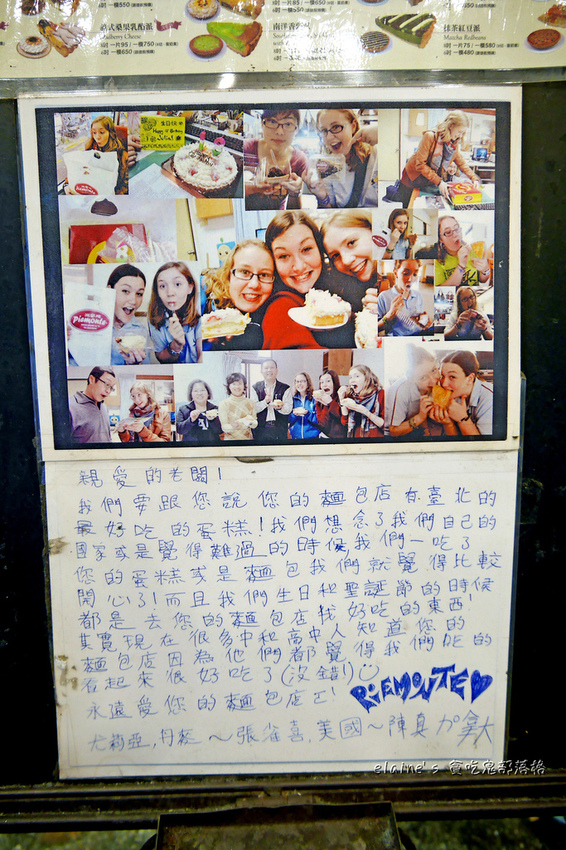 南洋香
Mulberry Cheese
抹茶紅豆派
Matcha Redbeans
Piemonte
親愛的老闆！
我們要跟您說您的麵包店有臺北的
最好吃的蛋糕！我們想念了我們自己的
國家或是覺得難過的時候我們一吃了
您的蛋糕或是麵包我們就覺得比較
開心了！而且我們生日和聖誕節的時候
都是去您的麵包店找好吃的東西！
其實現在很多中和高中人知道您的
麵包店因為他們都覺得我們吃的
看起來很好吃了(沒錯!)
永遠愛您的麵包店
PIEMONTE
尤莉亞,丹麥～張雀喜,美國～陳真加拿大
elaine's 貪吃鬼部落格